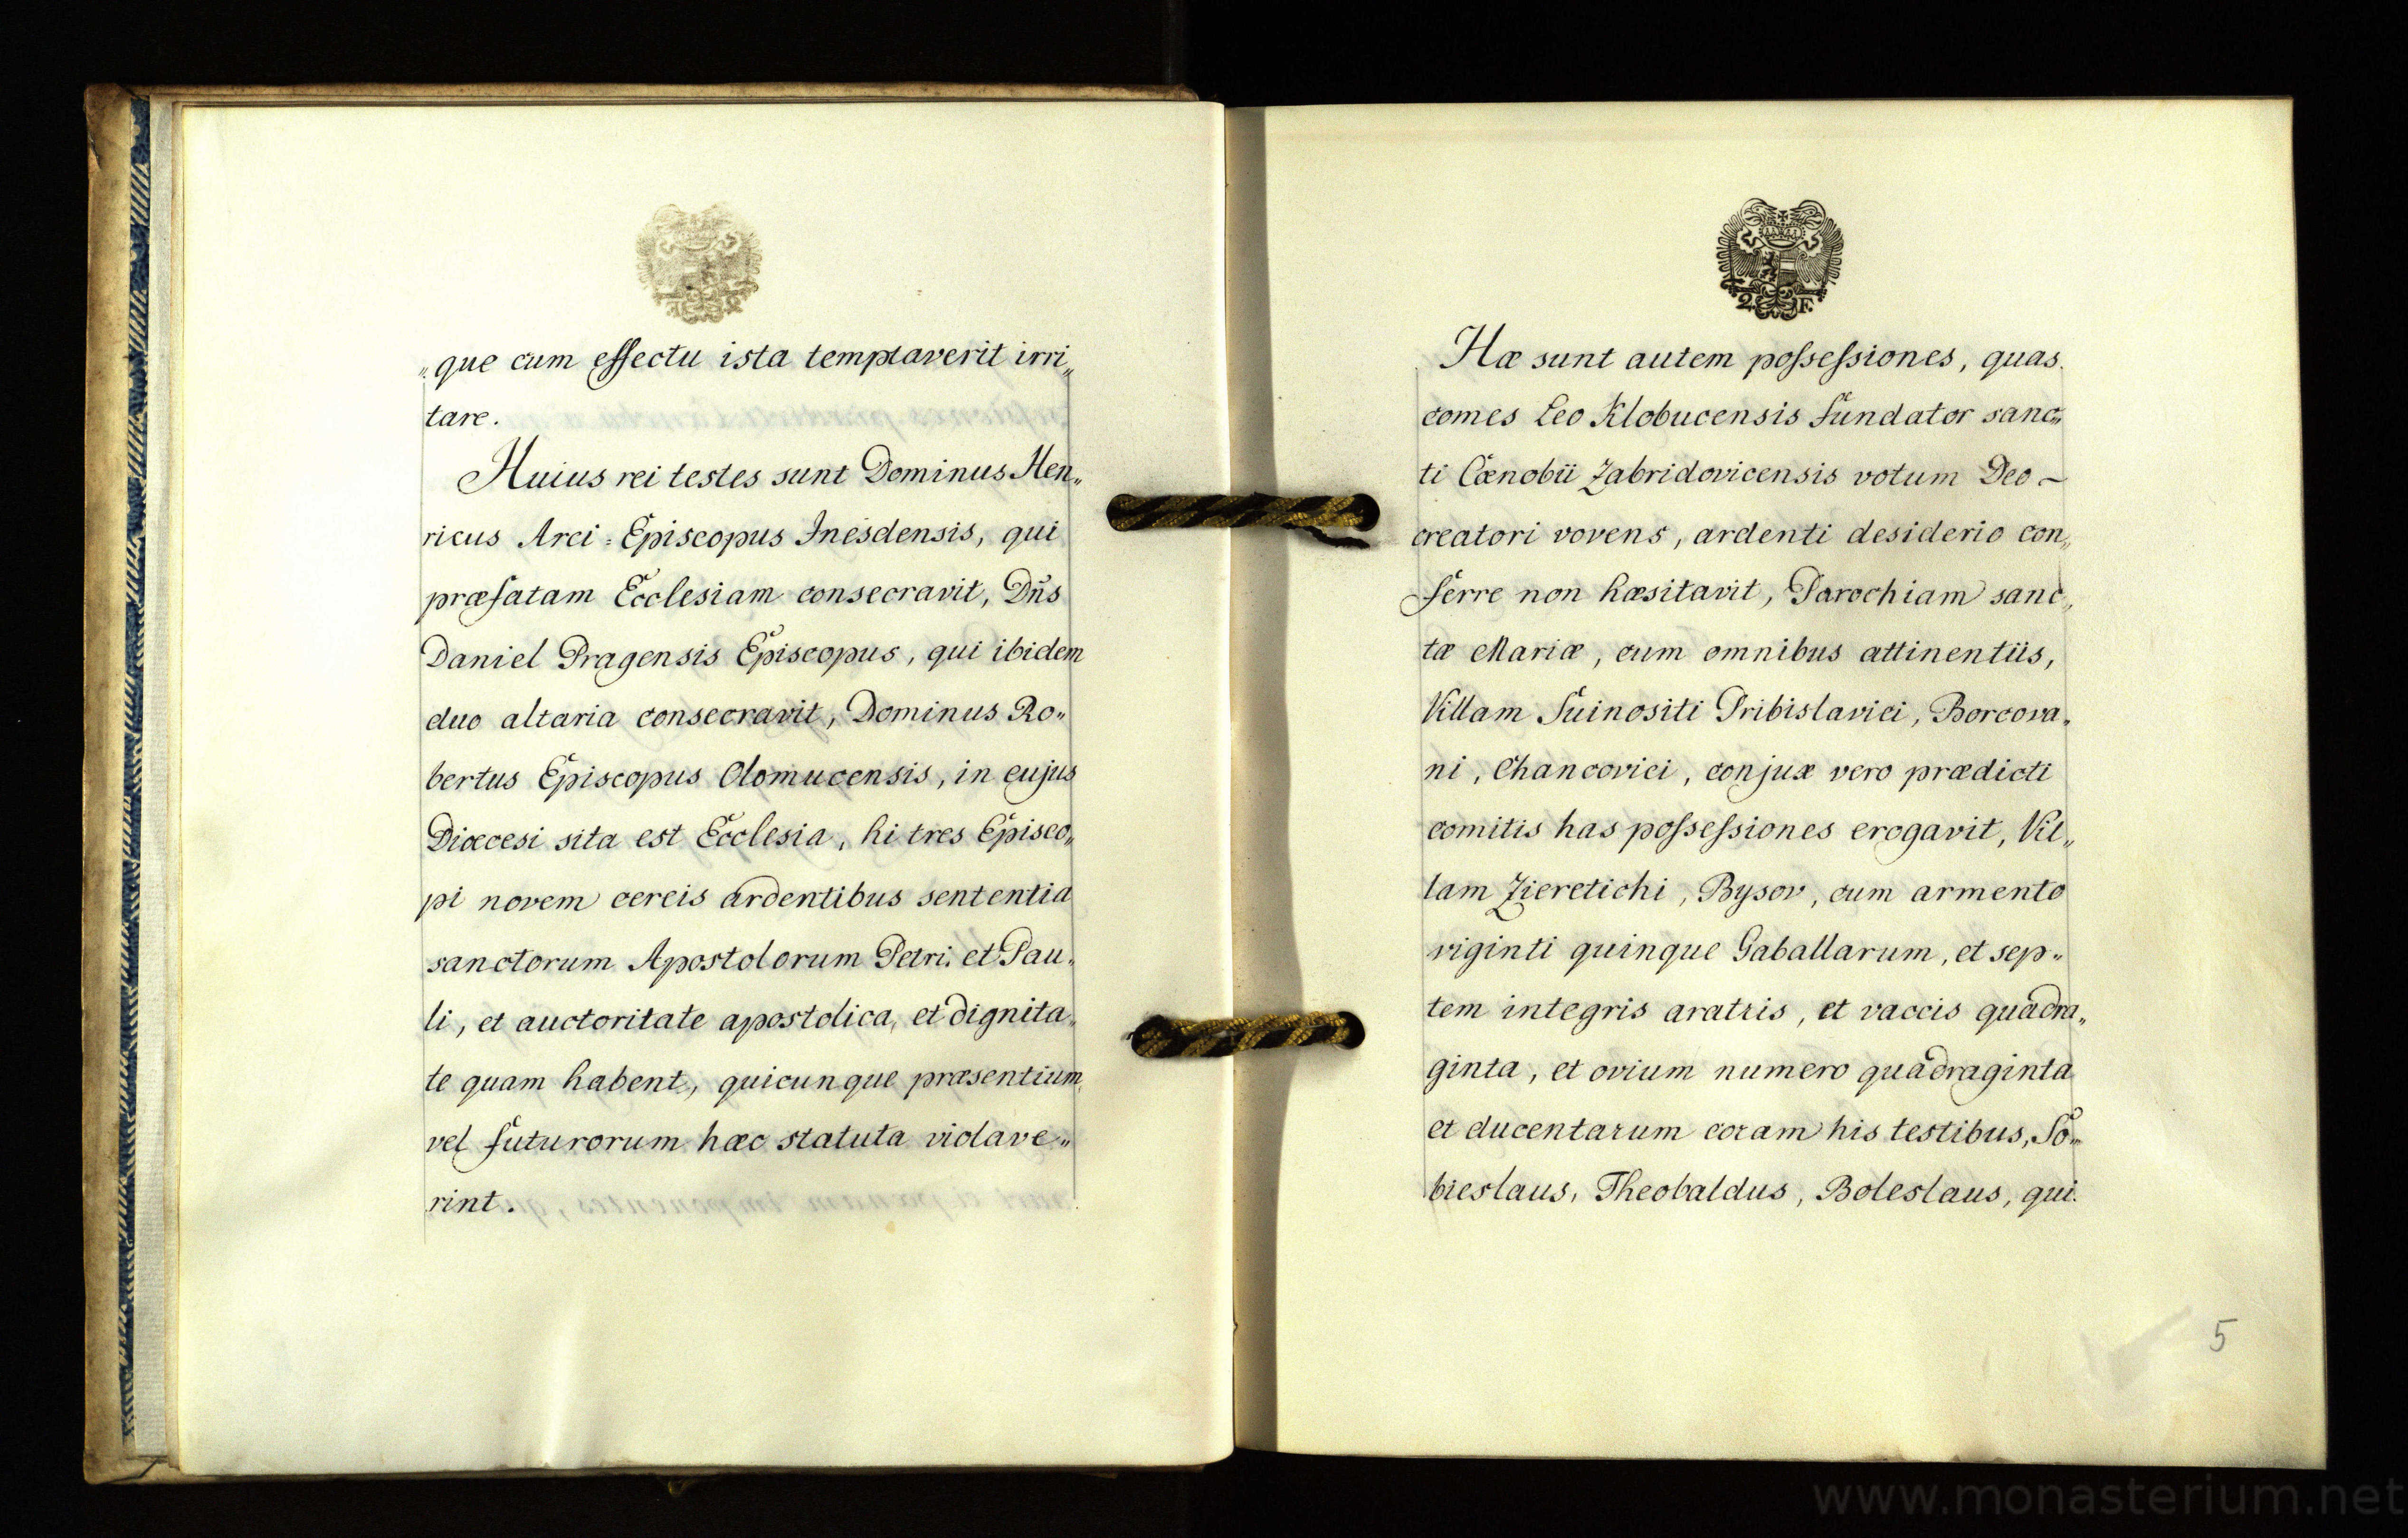 „que cum effectu ista temptaverit irri„
tare.
Huius rei testes sunt Dominus Hen„
ricus Arci = Episcopus Inesdensis, qui
præfatam Ecclesiam consecravit, Dñs
Daniel Pragensis Episcopus, qui ibidem
duo altaria consecravit, Dominus Ro„
bertus Episcopus Olomucensis, in cujus
Diœcesi sita est Ecclesia, hi tres Episco„
pi novem cereis ardentibus sententia
sanctorum Apostolorum Petri, et Pau„
li, et auctoritate apostolica, et dignita„
te quam habent, quicunque præsentium,
vel futurorum hæc statuta violave„
rint.
Hæ sunt autem possessiones, quas
comes Leo Klobucensis Fundator sanc„
ti Cœnobii Zabridovicensis votum Deo ~
creatori vovens, ardenti desiderio con„
ferre non hæsitavit, Parochiam sanc„
tæ Mariæ, cum omnibus attinentiis,
Villam Suinositi Pribislavici, Borcova„
ni, Chancovici, conjux vero prædicti
comitis has possessiones erogavit, Vil„
lam Zieretichi, Bysov, cum armento
viginti quinque Gaballarum, et sep„
tem integris aratris, et vaccis quadra„
ginta, et ovium numero quadraginta
et ducentarum coram his testibus, So„
bieslaus, Theobaldus, Boleslaus, qui
2 F.
5
www.monasterium.net